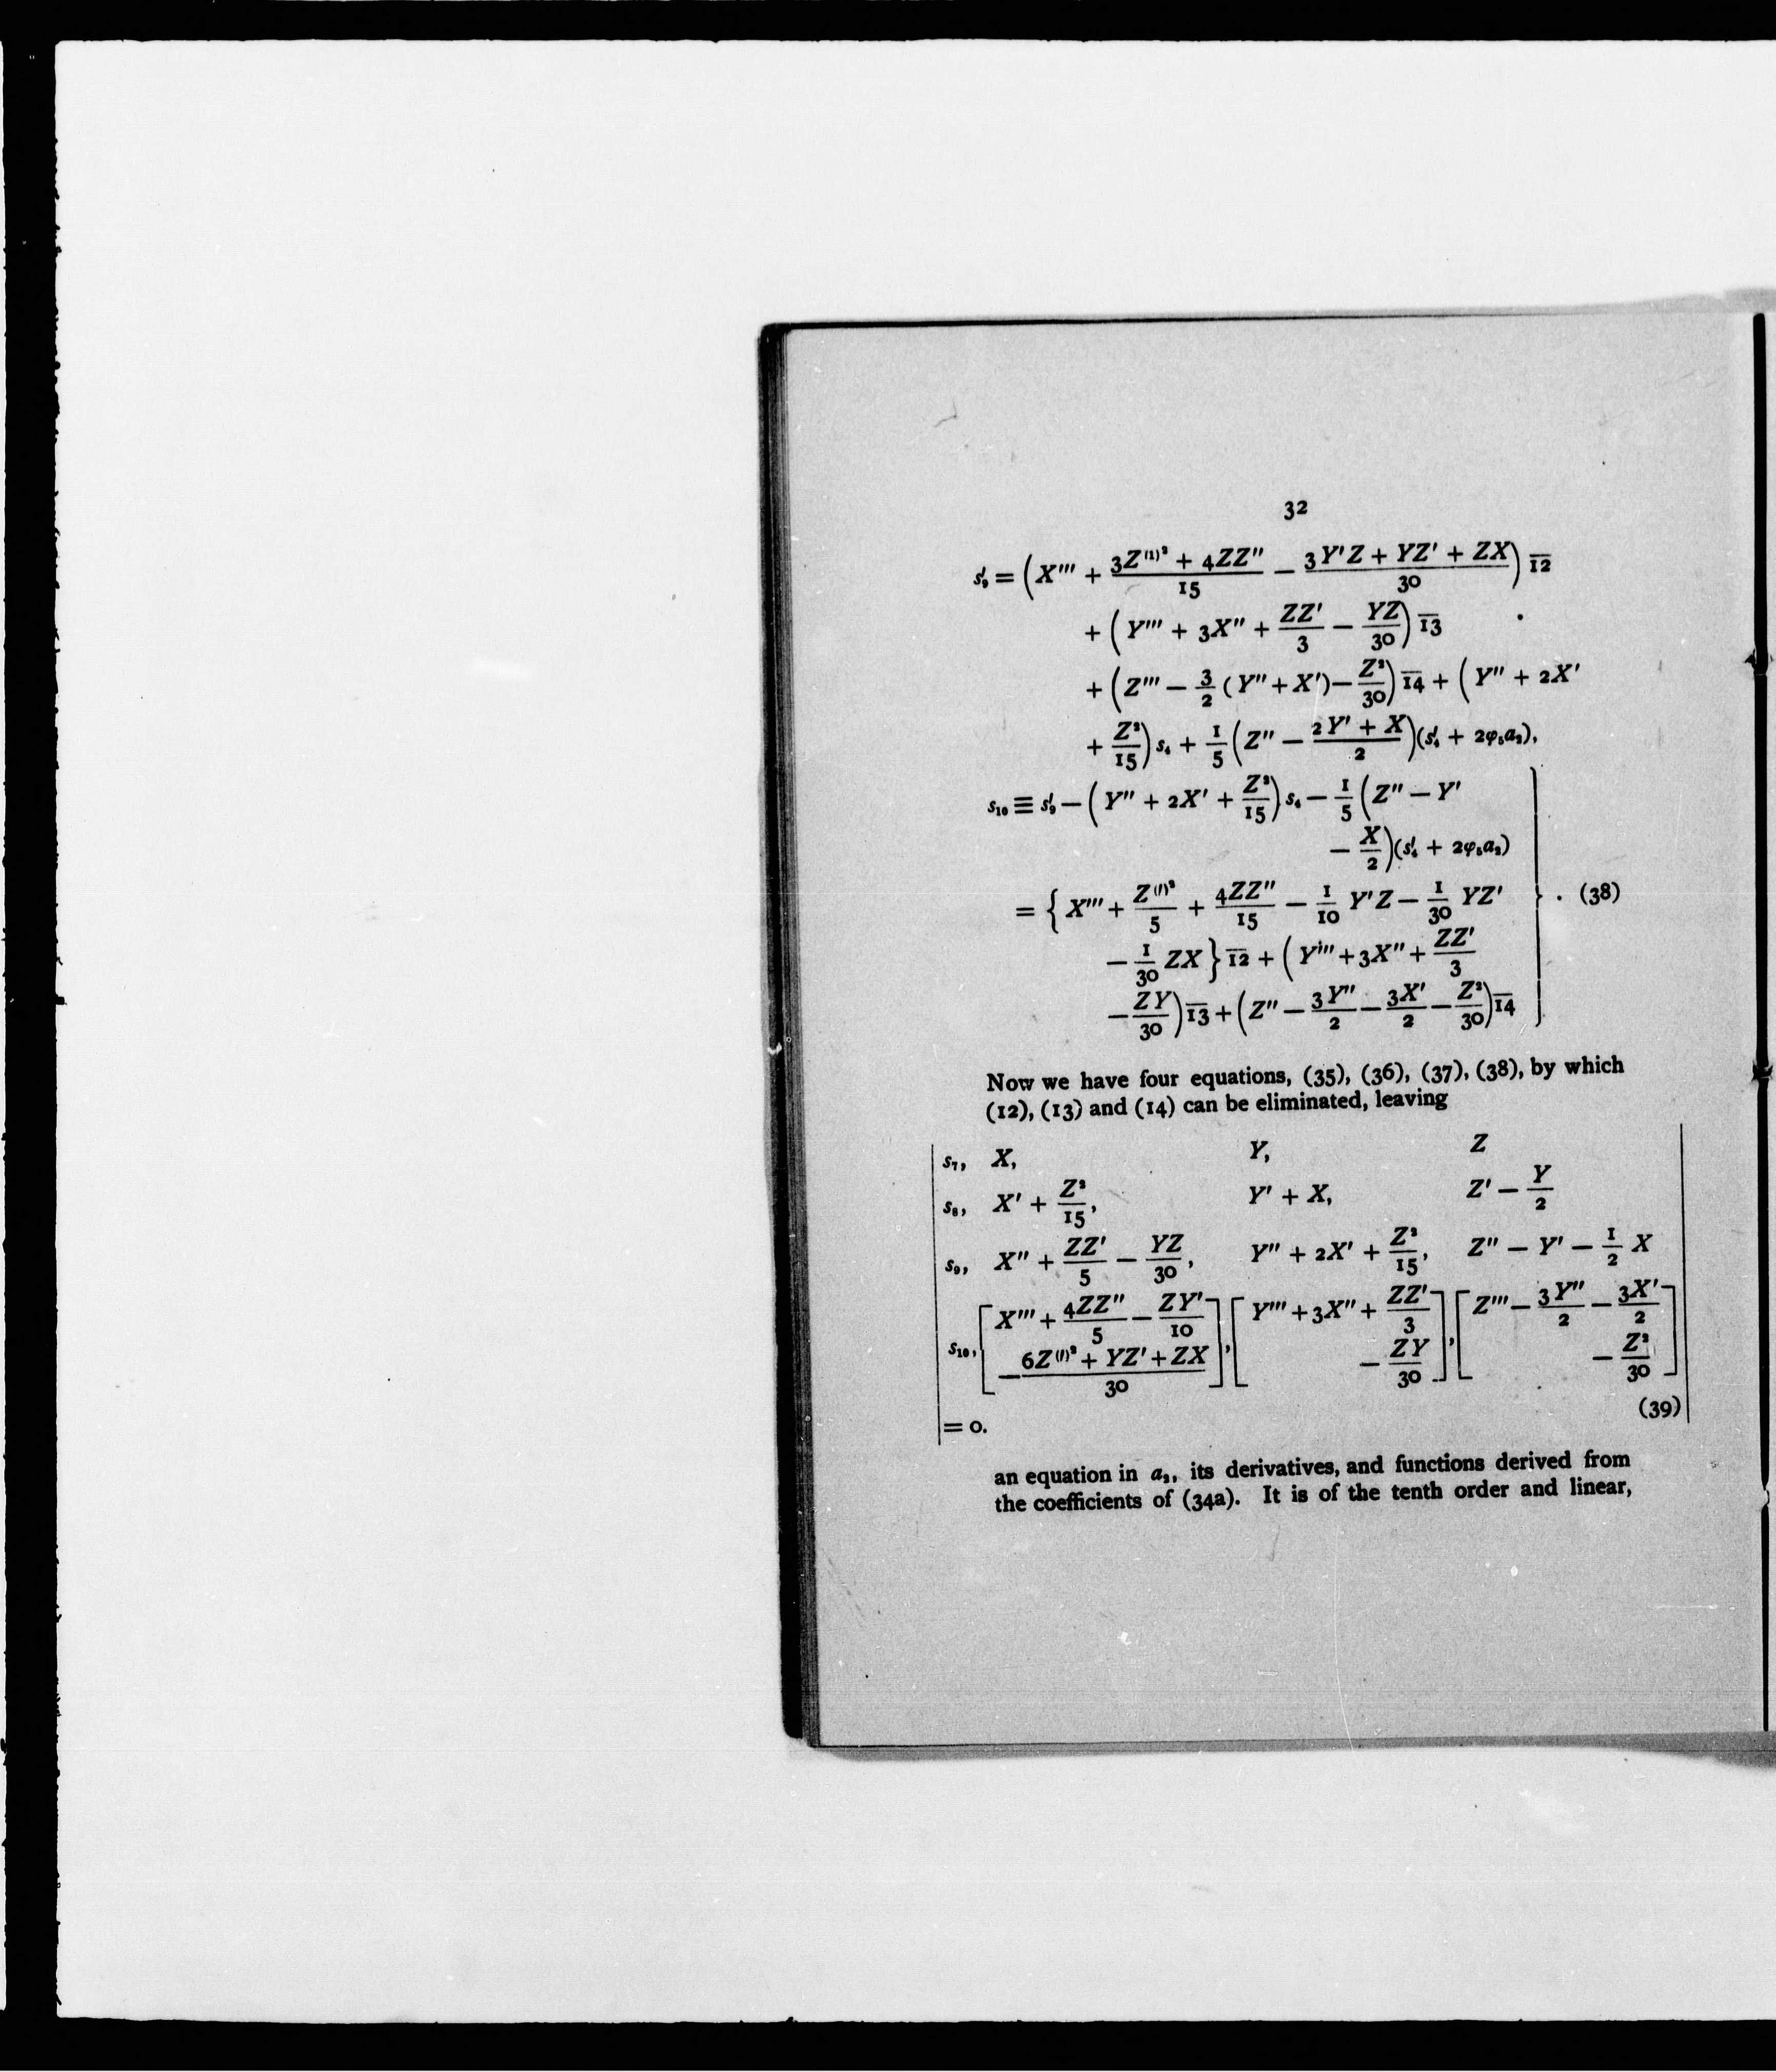 32
s′₉ = (X‴ + (3Z⁽¹⁾² + 4ZZ″)/15 − (3Y′Z + YZ′ + ZX)/30) 1̅2̅
+ (Y‴ + 3X″ + ZZ′/3 − YZ/30) 1̅3̅
+ (Z‴ − 3/2 (Y″ + X′) − Z²/30) 1̅4̅ + (Y″ + 2X′
+ Z²/15) s₄ + 1/5 (Z″ − (2Y′ + X)/2)(s′₄ + 2φ₅a₂),
s₁₀ ≡ s′₉ − (Y″ + 2X′ + Z²/15) s₄ − 1/5 (Z″ − Y′
− X/2)(s′₄ + 2φ₅a₂)
= {X‴ + Z⁽′⁾²/5 + 4ZZ″/15 − 1/10 Y′Z − 1/30 YZ′ } . (38)
− 1/30 ZX} 1̅2̅ + (Y‴ + 3X″ + ZZ′/3
− ZY/30) 1̅3̅ + (Z″ − 3Y″/2 − 3X′/2 − Z²/30) 1̅4̅
Now we have four equations, (35), (36), (37), (38), by which
(12), (13) and (14) can be eliminated, leaving
s₇, X, Y, Z
s₈, X′ + Z²/15, Y′ + X, Z′ − Y/2
s₉, X″ + ZZ′/5 − YZ/30, Y″ + 2X′ + Z²/15, Z″ − Y′ − 1/2 X
s₁₀, [X‴ + 4ZZ″/5 − ZY′/10 − (6Z⁽′⁾² + YZ′ + ZX)/30], [Y‴ + 3X″ + ZZ′/3 − ZY/30], [Z‴ − 3Y″/2 − 3X′/2 − Z²/30]
(39)
= 0.
an equation in a₂, its derivatives, and functions derived from
the coefficients of (34a). It is of the tenth order and linear,